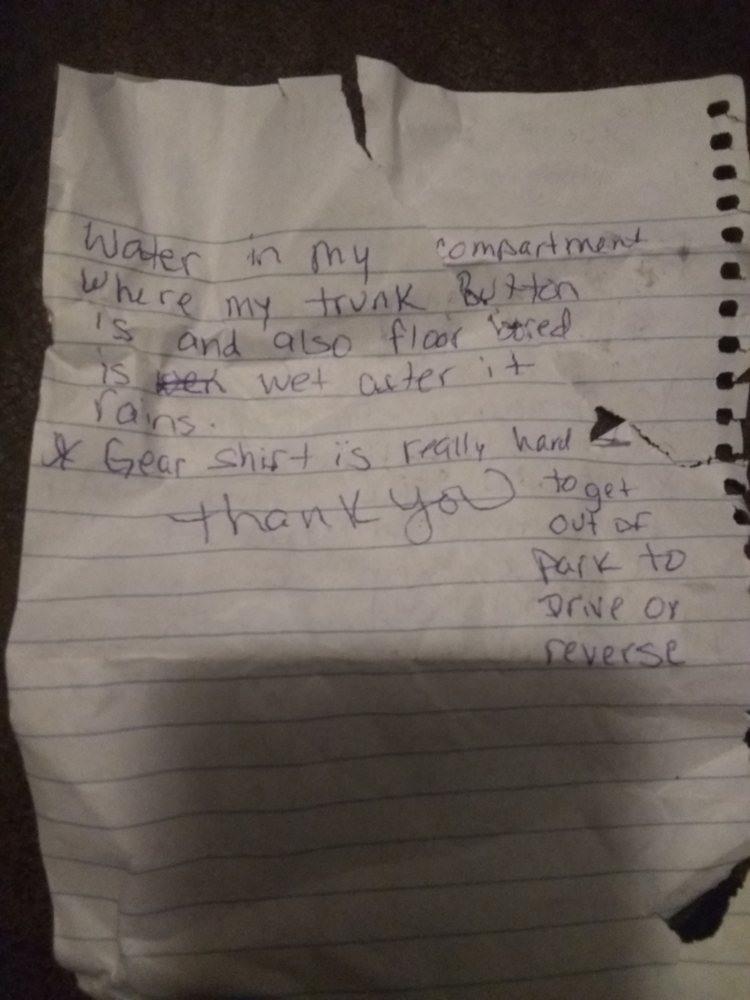 Water in my compartment
Where my trunk Button
is and also floor bored
is wet after it
rains.
* Gear shift is really hard
to get
thank you
out of
park to
Drive or
reverse